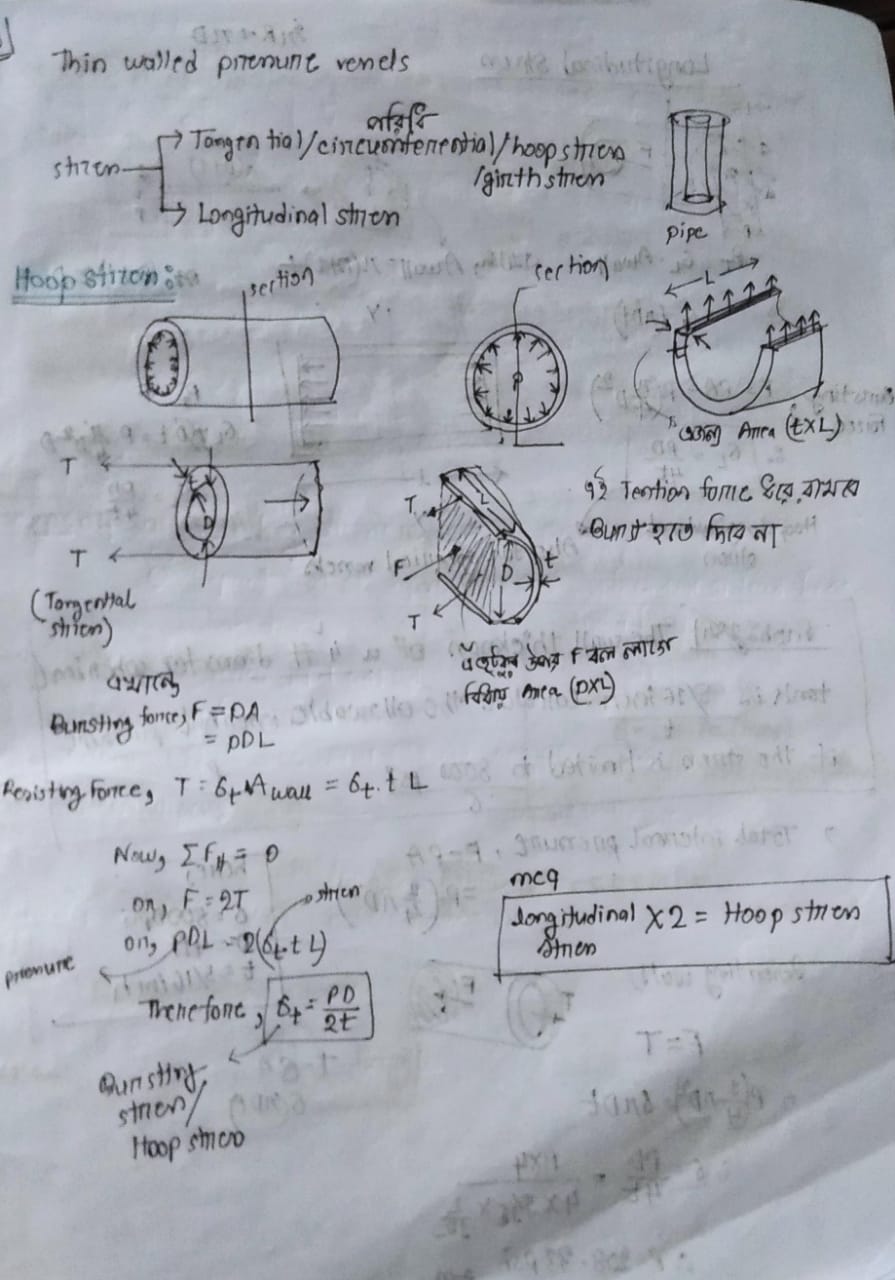 Thin walled pressure vessels
পরিধি
stress
Tangential/circumferential/hoop stress
/girth stress
Longitudinal stress
pipe
Hoop stress:
section
section
L
P
Area (t×L)
T
T
t
D
(Tangential
stress)
T
F
T
L
D
t
এই Tention force ধরে রাখবে
Burst হতে দিবে না
উপর F বল লাগে
Area (D×L)
এখানে
Bursting force, F = PA
= PDL
Resisting Force, T = σt Awall = σt. t L
Now, ΣFH = 0
or, F = 2T
stress
or, PDL = 2(σt. t L)
pressure
Therefore, σt = PD/2t
Bursting
stress/
Hoop stress
mcq
longitudinal stress × 2 = Hoop stress